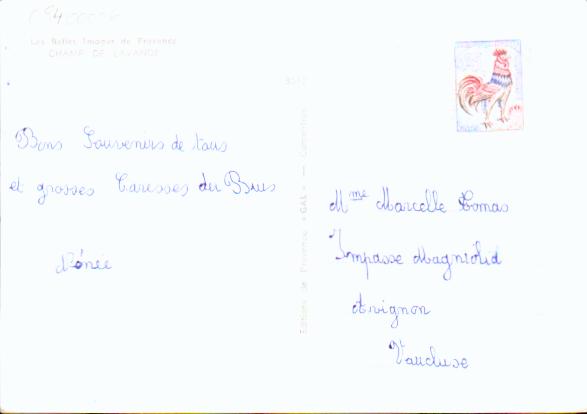 Les Belles Images de Provence
CHAMP DE LAVANDE
Bons Souvenirs de tous
et grosses Caresses du Brus
Rénée
Editions de Provence «GAL» —
Mme Marcelle Comas
Impasse Magnòlid
Avignon
Vaucluse